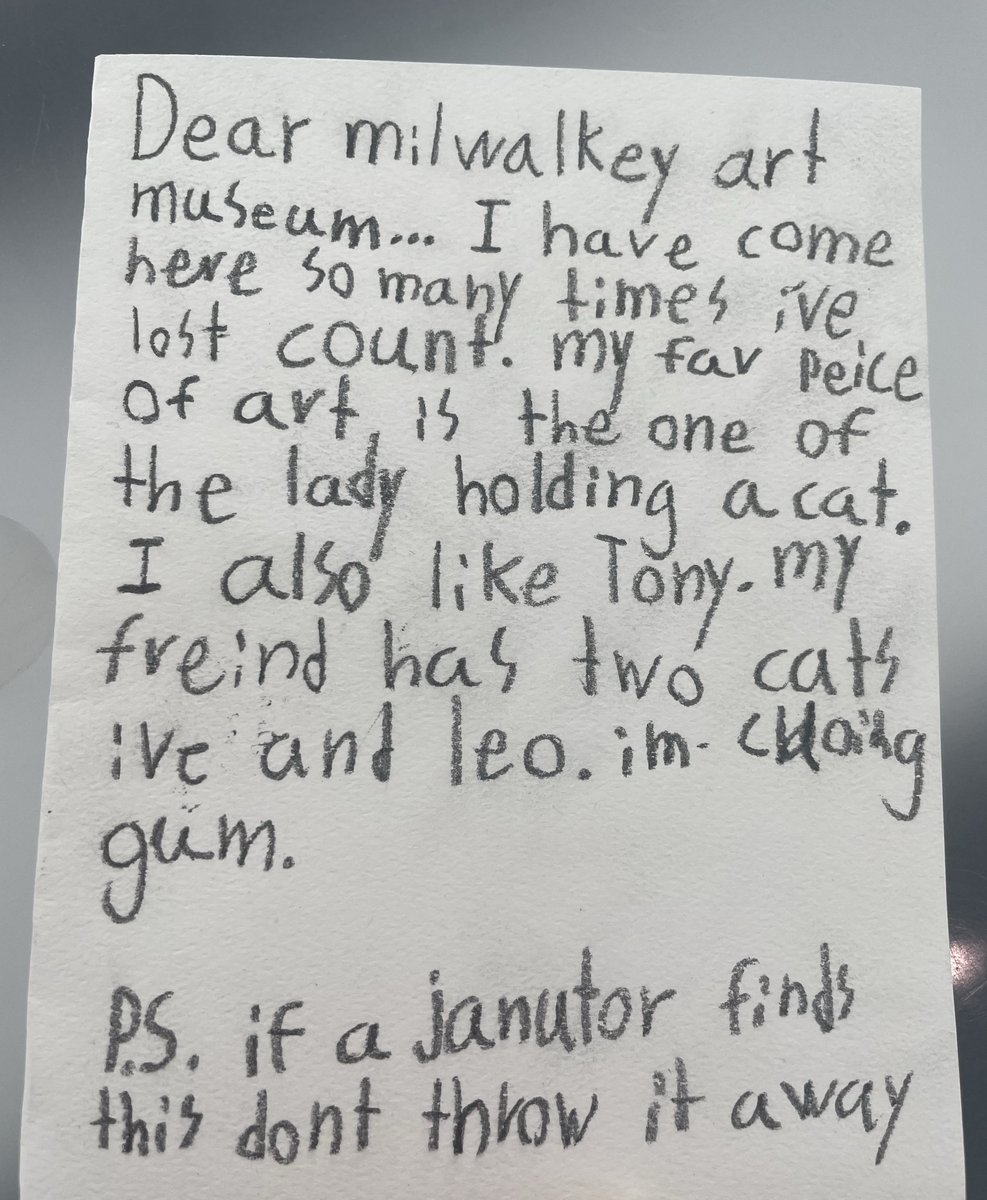 Dear milwalkey art
museum... I have come
here so many times ive
lost count. my fav peice
of art, is the one of
the lady holding a cat.
I also like Tony. my
freind has two cats
ive and leo. im choing
gum.
P.S. if a janutor finds
this dont throw it away